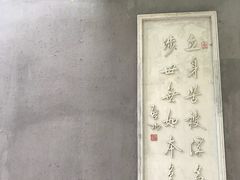 立身苦被浮名
涉世無如本色